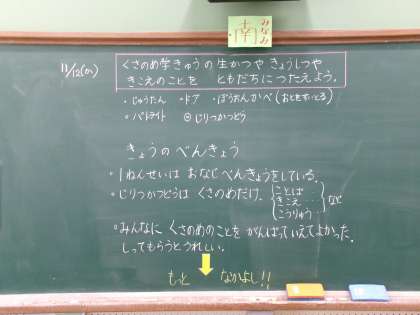 みなみ
南
11/12(か)
くさのめ学きゅうの生かつや きょうしつや
きこえのことを ともだちにつたえよう。
・じゅうたん ・ドア ・ぼうおんかべ(おとをすいとる)
・パトライト ◎じりつかつどう
きょうのべんきょう
・1ねんせいは おなじ べんきょうをしている。
・じりつかつどうは くさのめだけ。 ことば… きこえ… こうりゅう… など
・みんなに くさのめのことを がんばっていえてよかった。
しってもらうとうれしい。
もっと なかよし!!